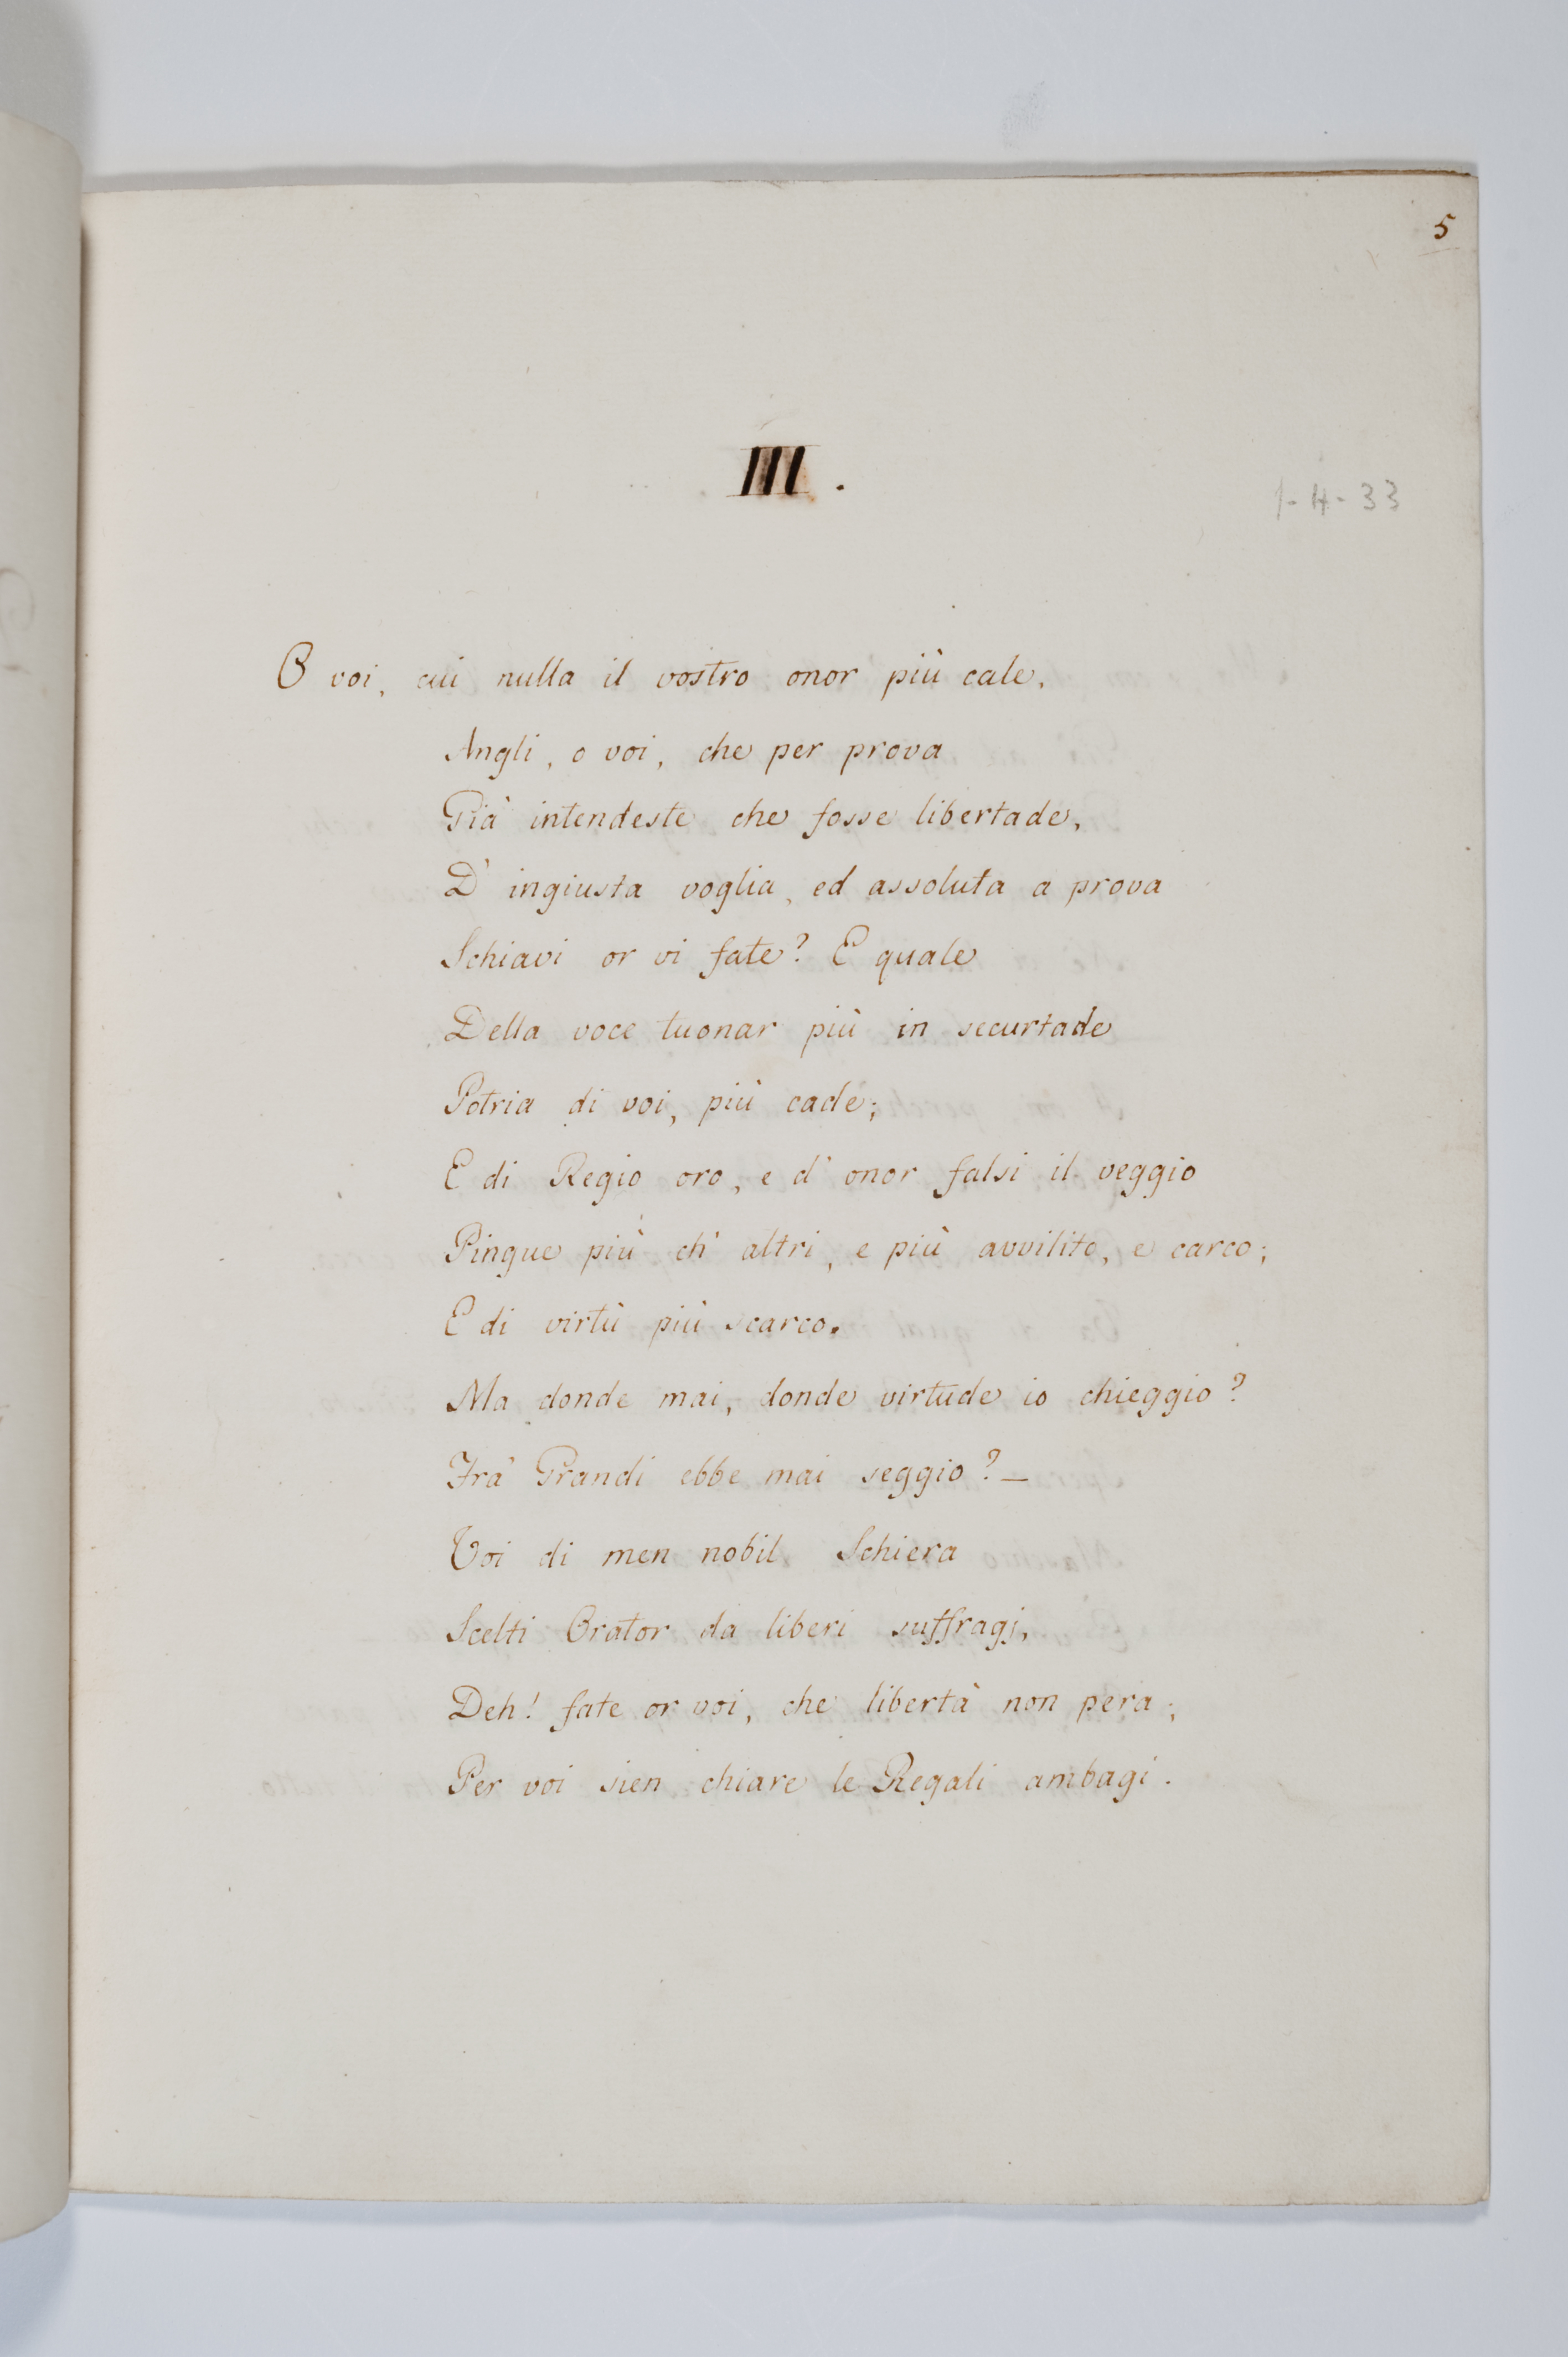 5
III.
1-H-33
O voi, cui nulla il vostro onor più cale,
Angli, o voi, che per prova
Già intendeste che fosse libertade,
D' ingiusta voglia, ed assoluta a prova
Schiavi or vi fate? E quale
Della voce tuonar più in securtade
Potria di voi, più cade;
E di Regio oro, e d' onor falsi il veggio
Pingue più ch' altri, e più avvilito, e carco;
E di virtù più scarco.
Ma donde mai, donde virtude io chieggio?
Fra' Grandi ebbe mai seggio? —
Voi di men nobil Schiera
Scelti Orator da liberi suffragj,
Deh! fate or voi, che libertà non pera;
Per voi sien chiare le Regali ambagi.